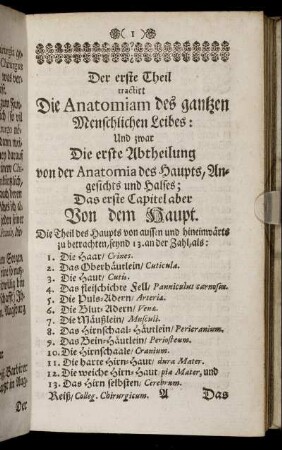 ( 1 )
Der erste Theil
tractirt
Die Anatomiam des gantzen
Menschlichen Leibes:
Und zwar
Die erste Abtheilung
von der Anatomia des Haupts, An-
gesichts und Halses;
Das erste Capitel aber
Von dem Haupt.
Die Theil des Haupts von aussen und hineinwärts
zu betrachten, seynd 13. an der Zahl, als:
1. Die Haar/ Crines.
2. Das Oberhäutlein/ Cuticula.
3. Die Haut/ Cutis.
4. Das fleischichte Fell/ Panniculus carnosus.
5. Die Puls-Adern/ Arteria.
6. Die Blut-Adern/ Vena.
7. Die Mäußlein/ Musculi.
8. Das Hirnschaal-Häutlein/ Pericranium.
9. Das Bein-Häutlein/ Periosteum.
10. Die Hirnschaale/ Cranium.
11. Die harte Hirn-Haut/ dura Mater.
12. Die weiche Hirn-Haut pia Mater, und
13. Das Hirn selbsten/ Cerebrum.
Reiß/ Colleg. Chirurgicum. A Das